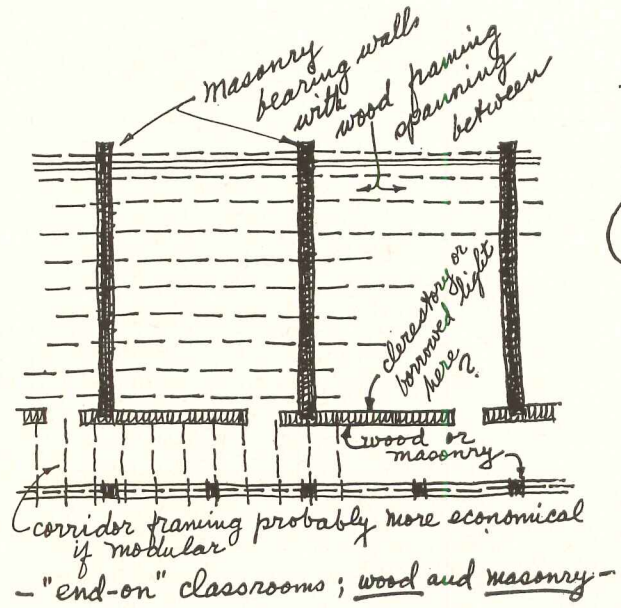 Masonry
bearing walls
with
wood framing
spanning
between
clerestory or
borrowed light
here?
wood or
masonry
corridor framing probably more economical
if modular
- "end-on" classrooms; wood and masonry -